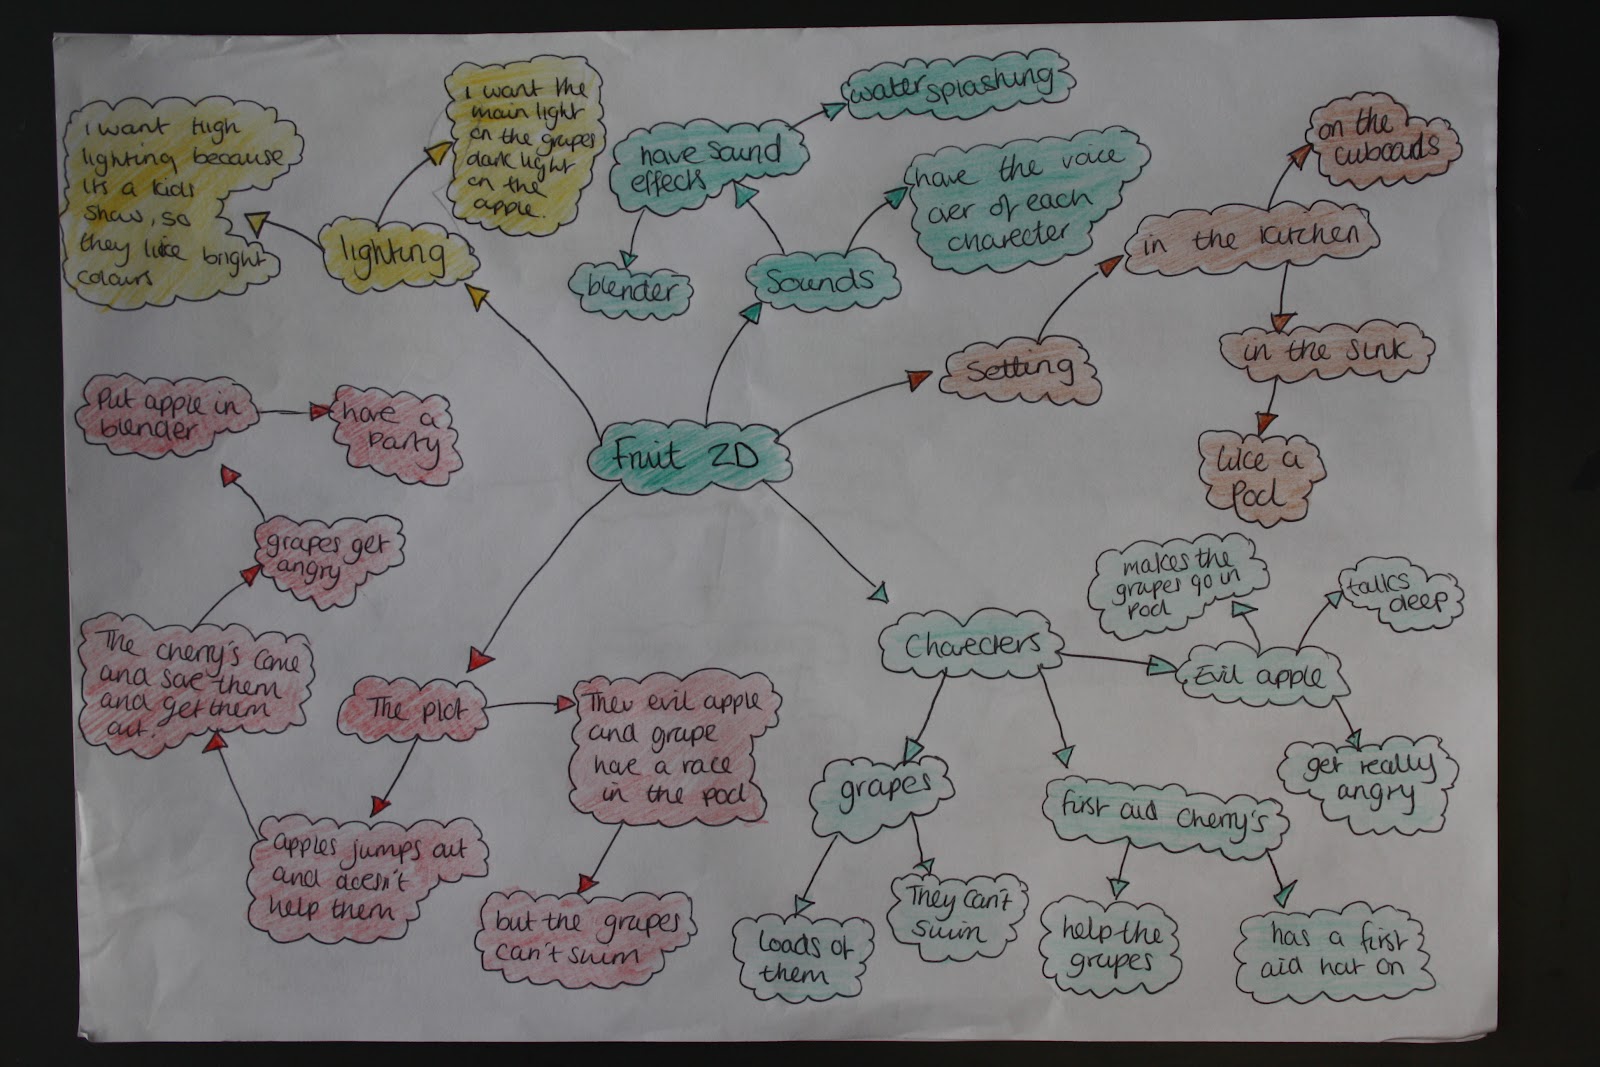 Fruit 2D
lighting
I want high
lighting because
its a kids
show, so
they like bright
colours
I want the
main light
on the grapes
dark light
on the
apple.
Sounds
have sound
effects
water splashing
blender
have the voice
over of each
charecter
Setting
in the kitchen
on the
cuboards
in the sink
like a
Pool
Charecters
Evil apple
makes the
grapes go in
pool
talks
deep
get really
angry
grapes
loads of
them
They can't
swim
first aid cherry's
help the
grapes
has a first
aid hat on
The plot
The evil apple
and grape
have a race
in the pool
but the grapes
can't swim
apples jumps out
and doesn't
help them
The cherry's come
and save them
and get them
out.
grapes get
angry
Put apple in
blender
have a
party